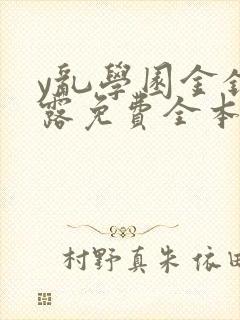 y亂學園金
露免費全本
村野真朱 依田